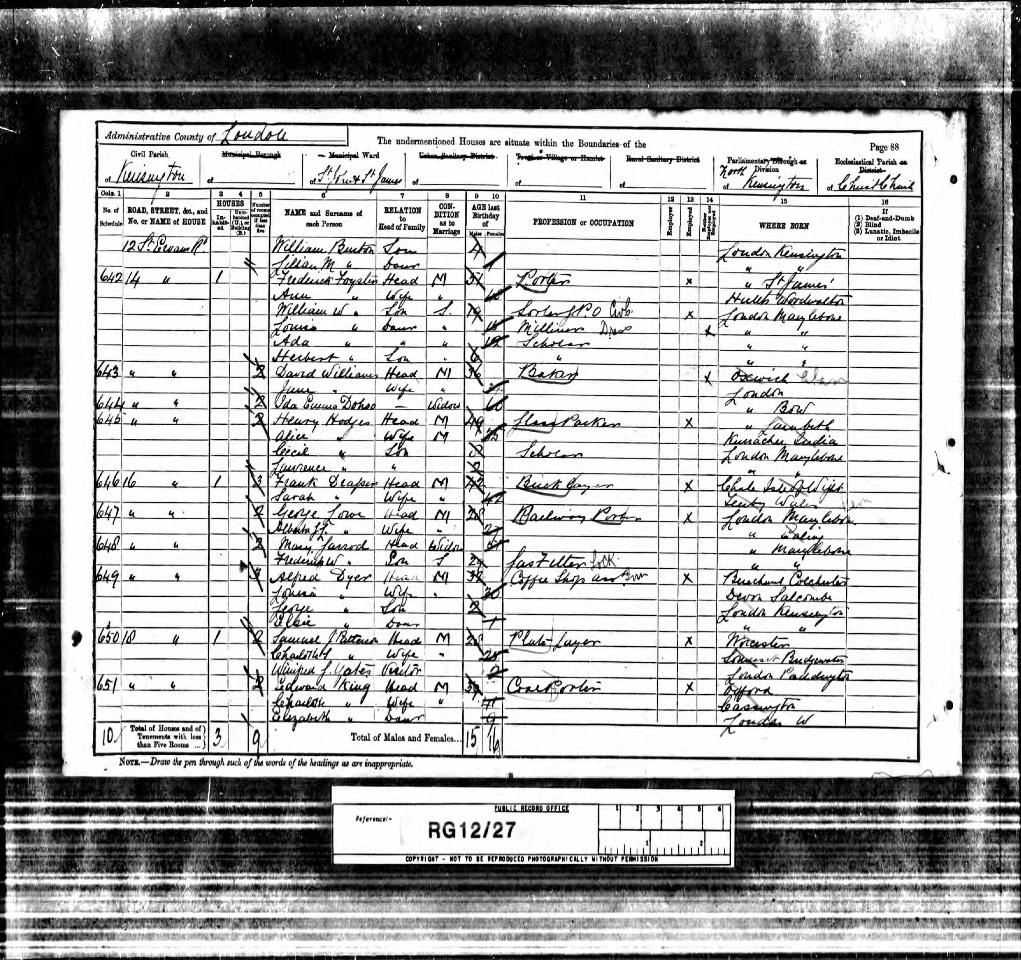 Administrative County of London
The undermentioned Houses are situate within the Boundaries of the
Page 88
Civil Parish Municipal Borough Municipal Ward Urban Sanitary District Town or Village or Hamlet Rural Sanitary District Parliamentary Borough or Division Ecclesiastical Parish or District
of Kensington of of St. John & St. James of of of North Kensington of Christ Church
Cols. 1 2 3 4 5 6 7 8 9 10 11 12 13 14 15 16
No. of Schedule ROAD, STREET, &c., and No. or NAME of HOUSE HOUSES Inhabited Uninhabited (U.), or Building (B.) Number of rooms occupied if less than five NAME and Surname of each Person RELATION to Head of Family CONDITION as to Marriage AGE last Birthday of Males Females PROFESSION or OCCUPATION Employer Employed Neither Employer nor Employed WHERE BORN If (1) Deaf-and-Dumb (2) Blind (3) Lunatic, Imbecile or Idiot
12 William Burton Son 4 London Kensington
Lilian M " Daur 1 " "
642 14 " 1 Frederick Foyster Head M Porter x " St James'
Ann " Wife " Hunts Woodwalton
William W " Son S. 19 Sorter G P O x London Marylebone
Louisa " Daur Milliner x " "
Ada " " " Scholar " "
Herbert " Son " 6 " " "
643 " " 2 David Williams Head M 36 Baker x Oxwich
Jane " Wife " London
644 " " 2 Ida Emma — Widow " Bow
645 " " 2 Henry Hodges Head M 49 Glass Packer x " Lambeth
Alice " Wife M Kurrachee India
Cecil " Son Scholar London Marylebone
Lawrence " " 2 " "
646 16 " 1 3 Frank Draper Head M 42 x Chale Isle of Wight
Sarah " Wife " Tenby Wales
647 " " 2 George Lowe Head M 28 Railway Porter x London Marylebone
" Wife " " Ealing
648 " " 2 Mary Jarrod Head Widow " Marylebone
Frederick W " Son S Gas Fitter " "
649 " " Alfred Dyer Head M 32 Coffee Shop x Colchester
Louisa " Wife " 30 Devon Salcombe
George " Son 2 London Kensington
Elsie " Daur 1 " "
650 18 " 1 2 Samuel J Patterson Head M 28 x Worcester
Charlotte " Wife " 28 Somerset Bridgwater
Winifred G. Yates Visitor 2 London Paddington
651 " " 2 Edward King Head M Coal Porter x
Charlotte " Wife " 41 Cassington
Elizabeth " Daur 9 London W
10 Total of Houses and of Tenements with less than Five Rooms 3 9 Total of Males and Females... 15 16
NOTE.—Draw the pen through such of the words of the headings as are inappropriate.
PUBLIC RECORD OFFICE
1 2 3 4 5 6
Reference:-
RG12/27
1 2
COPYRIGHT - NOT TO BE REPRODUCED PHOTOGRAPHICALLY WITHOUT PERMISSION